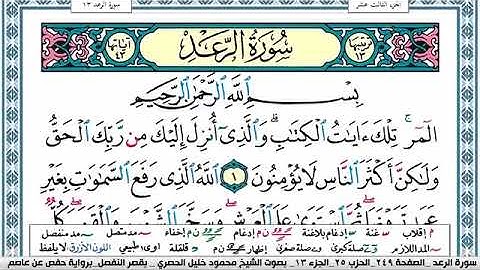 الجزء الثالث عشر
سورة الرعد ١٣
ترتيبها ١٣
سُورَةُ الرَّعْدِ
آياتها ٤٣
بِسْمِ ٱللَّهِ ٱلرَّحْمَٰنِ ٱلرَّحِيمِ
الٓمٓرۚ تِلۡكَ ءَايَٰتُ ٱلۡكِتَٰبِۗ وَٱلَّذِيٓ أُنزِلَ إِلَيۡكَ مِن رَّبِّكَ ٱلۡحَقُّ
وَلَٰكِنَّ أَكۡثَرَ ٱلنَّاسِ لَا يُؤۡمِنُونَ ١ ٱللَّهُ ٱلَّذِي رَفَعَ ٱلسَّمَٰوَٰتِ بِغَيۡرِ
م إقلاب غنة إدغام بلاغنة ن م إدغام ن م إخفاء مد متصل مد منفصل
المد اللازم صلة كبرى صلة صغرى إظهار ن م قلقلة اوى طبيعي اللون الأزرق لا يلفظ
سورة الرعد _ الصفحة ٢٤٩ _ الحزب ٢٥ _ الجزء ١٣ _ بصوت الشيخ محمود خليل الحصري _ بقصر المنفصل_ برواية حفص عن عاصم